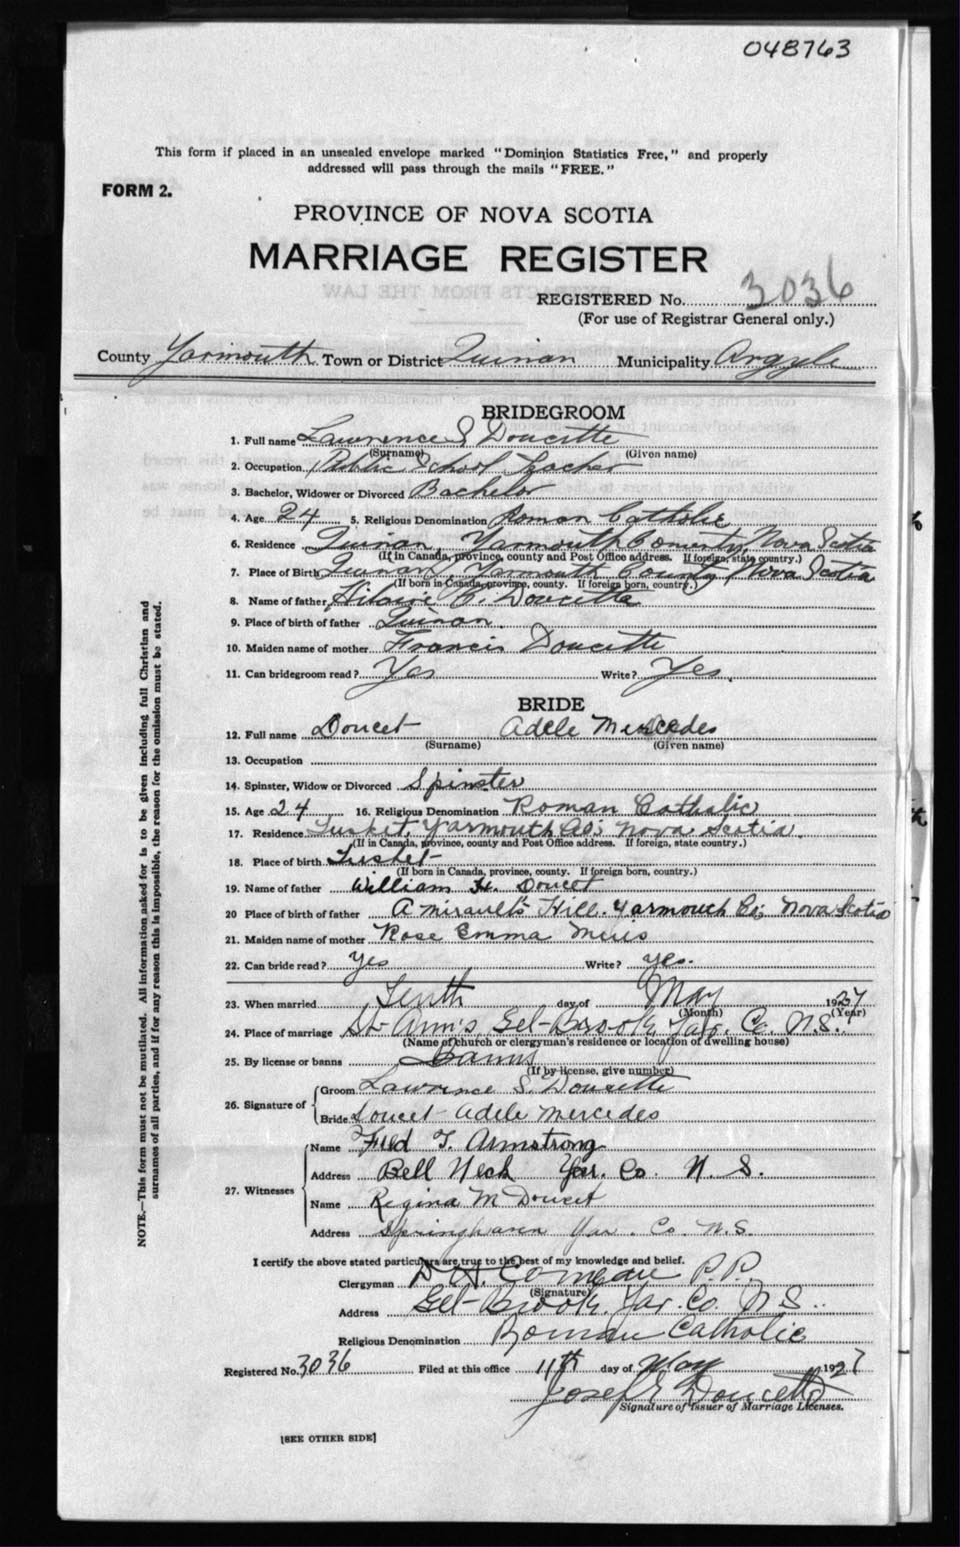 048763
This form if placed in an unsealed envelope marked "Dominion Statistics Free," and properly
addressed will pass through the mails "FREE."
FORM 2.
PROVINCE OF NOVA SCOTIA
MARRIAGE REGISTER
REGISTERED No. 3036
(For use of Registrar General only.)
County Yarmouth Town or District Quinan Municipality Argyle
BRIDEGROOM
1. Full name Lawrence S Doucette
(Surname) (Given name)
2. Occupation Public School Teacher
3. Bachelor, Widower or Divorced Bachelor
4. Age 24 5. Religious Denomination Roman Catholic
6. Residence Quinan, Yarmouth County, Nova Scotia
(If in Canada, province, county and Post Office address. If foreign, state country.)
7. Place of Birth Quinan, Yarmouth County, Nova Scotia
(If born in Canada, province, county. If foreign born, country.)
8. Name of father Hilaire C. Doucette
9. Place of birth of father Quinan.
10. Maiden name of mother Francis Doucette
11. Can bridegroom read? Yes Write? Yes.
BRIDE
12. Full name Doucet Adele Mercedes
(Surname) (Given name)
13. Occupation
14. Spinster, Widow or Divorced Spinster
15. Age 24 16. Religious Denomination Roman Catholic
17. Residence Tusket, Yarmouth Co; Nova Scotia.
(If in Canada, province, county and Post Office address. If foreign, state country.)
18. Place of birth Tusket
(If born in Canada, province, county. If foreign born, country.)
19. Name of father William H. Doucet
20 Place of birth of father Amirault's Hill. Yarmouth Co; Nova Scotia
21. Maiden name of mother Rose Emma Meuis
22. Can bride read? yes Write? yes.
23. When married Tenth day of May 1927
(Month) (Year)
24. Place of marriage St Ann's, Eel-Brook, Yar. Co. N.S.
(Name of church or clergyman's residence or location of dwelling house)
25. By license or banns Banns
(If by license, give number)
26. Signature of Groom Lawrence S. Doucette
Bride Doucet Adele Mercedes
27. Witnesses Name Fred T. Armstrong
Address Bell Neck Yar. Co. N. S.
Name Regina M Doucet
Address Springhaven Yar. Co. N.S.
I certify the above stated particulars are true to the best of my knowledge and belief.
Clergyman D H. Comeau P.P.
(Signature)
Address Eel-Brook Yar. Co. N S.
Religious Denomination Roman Catholic
Registered No. 3036 Filed at this office 11th day of May 1927
Joseph E Doucette
Signature of Issuer of Marriage Licenses.
[SEE OTHER SIDE]
NOTE.—This form must not be mutilated. All information asked for is to be given including full Christian and
surnames of all parties, and if for any reason this is impossible, the reason for the omission must be stated.